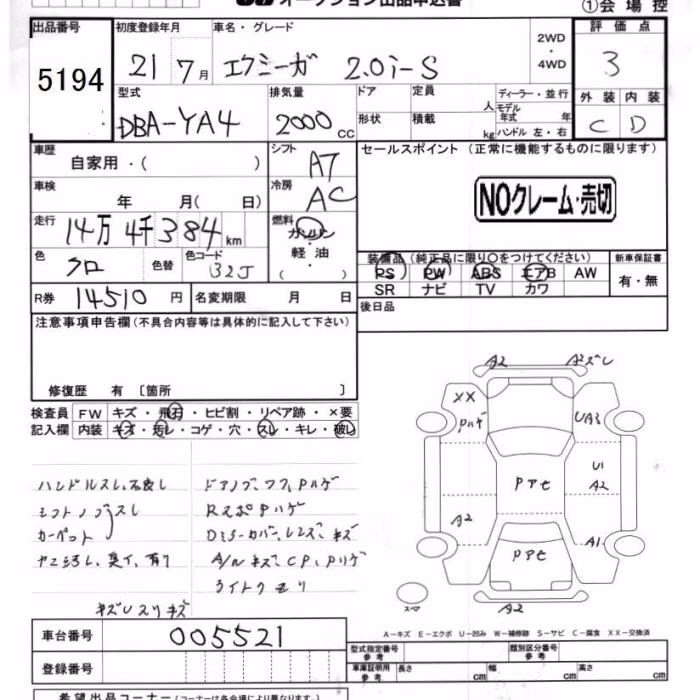 オークション出品申込書
①会場控
出品番号
5194
初度登録年月
21 7月
車名・グレード
エクシーガ 2.0i-S
2WD
4WD
評価点
3
型式
DBA-YA4
排気量
2000 cc
ドア
形状
定員 人
積載 kg
ディーラー・並行
モデル年式 年
ハンドル 左・右
外装 内装
C D
車歴
自家用・( )
シフト AT
セールスポイント (正常に機能するものに限ります)
NOクレーム・売切
車検
年 月( 日)
冷房 AC
走行
14万 4千384 km
燃料
ガソリン
軽油
( )
色 クロ
色替
色コード 32J
装備品(純正品に限り○をつけてください)
PS PW ABS エアB AW
SR ナビ TV カワ
新車保証書
有・無
R券 14510 円
名変期限 月 日
後日品
注意事項申告欄(不具合内容等は具体的に記入して下さい)
修復歴 有 〔箇所 〕
検査員記入欄
FW キズ・飛石・ヒビ割・リペア跡・×要
内装 キズ・汚レ・コゲ・穴・スレ・キレ・破レ
ハンドルスレ、
シフトノブスレ
カーペット
ヤニ汚レ、臭イ、有り
キズUスリキズ
ドアノブ、フタ、Pハゲ
RスポPハゲ
Dミラーカバー、レンズ、キズ
A/Nキズ、CP、Pハゲ
ライトクモリ
A2 A2ズレ
XX
Pハゲ
UA3
Pアセ
U1
A2
A2
Pアセ
A1
スペア
A2
A-キズ E-エクボ U-凹み W-補修跡 S-サビ C-腐食 XX-交換済
車台番号
005521
登録番号
型式指定番号
参考
類別区分番号
参考
車庫証明用
参考
長さ cm
幅 cm
高さ cm
希望出品コーナー(コーナーは各会場により異なります。)